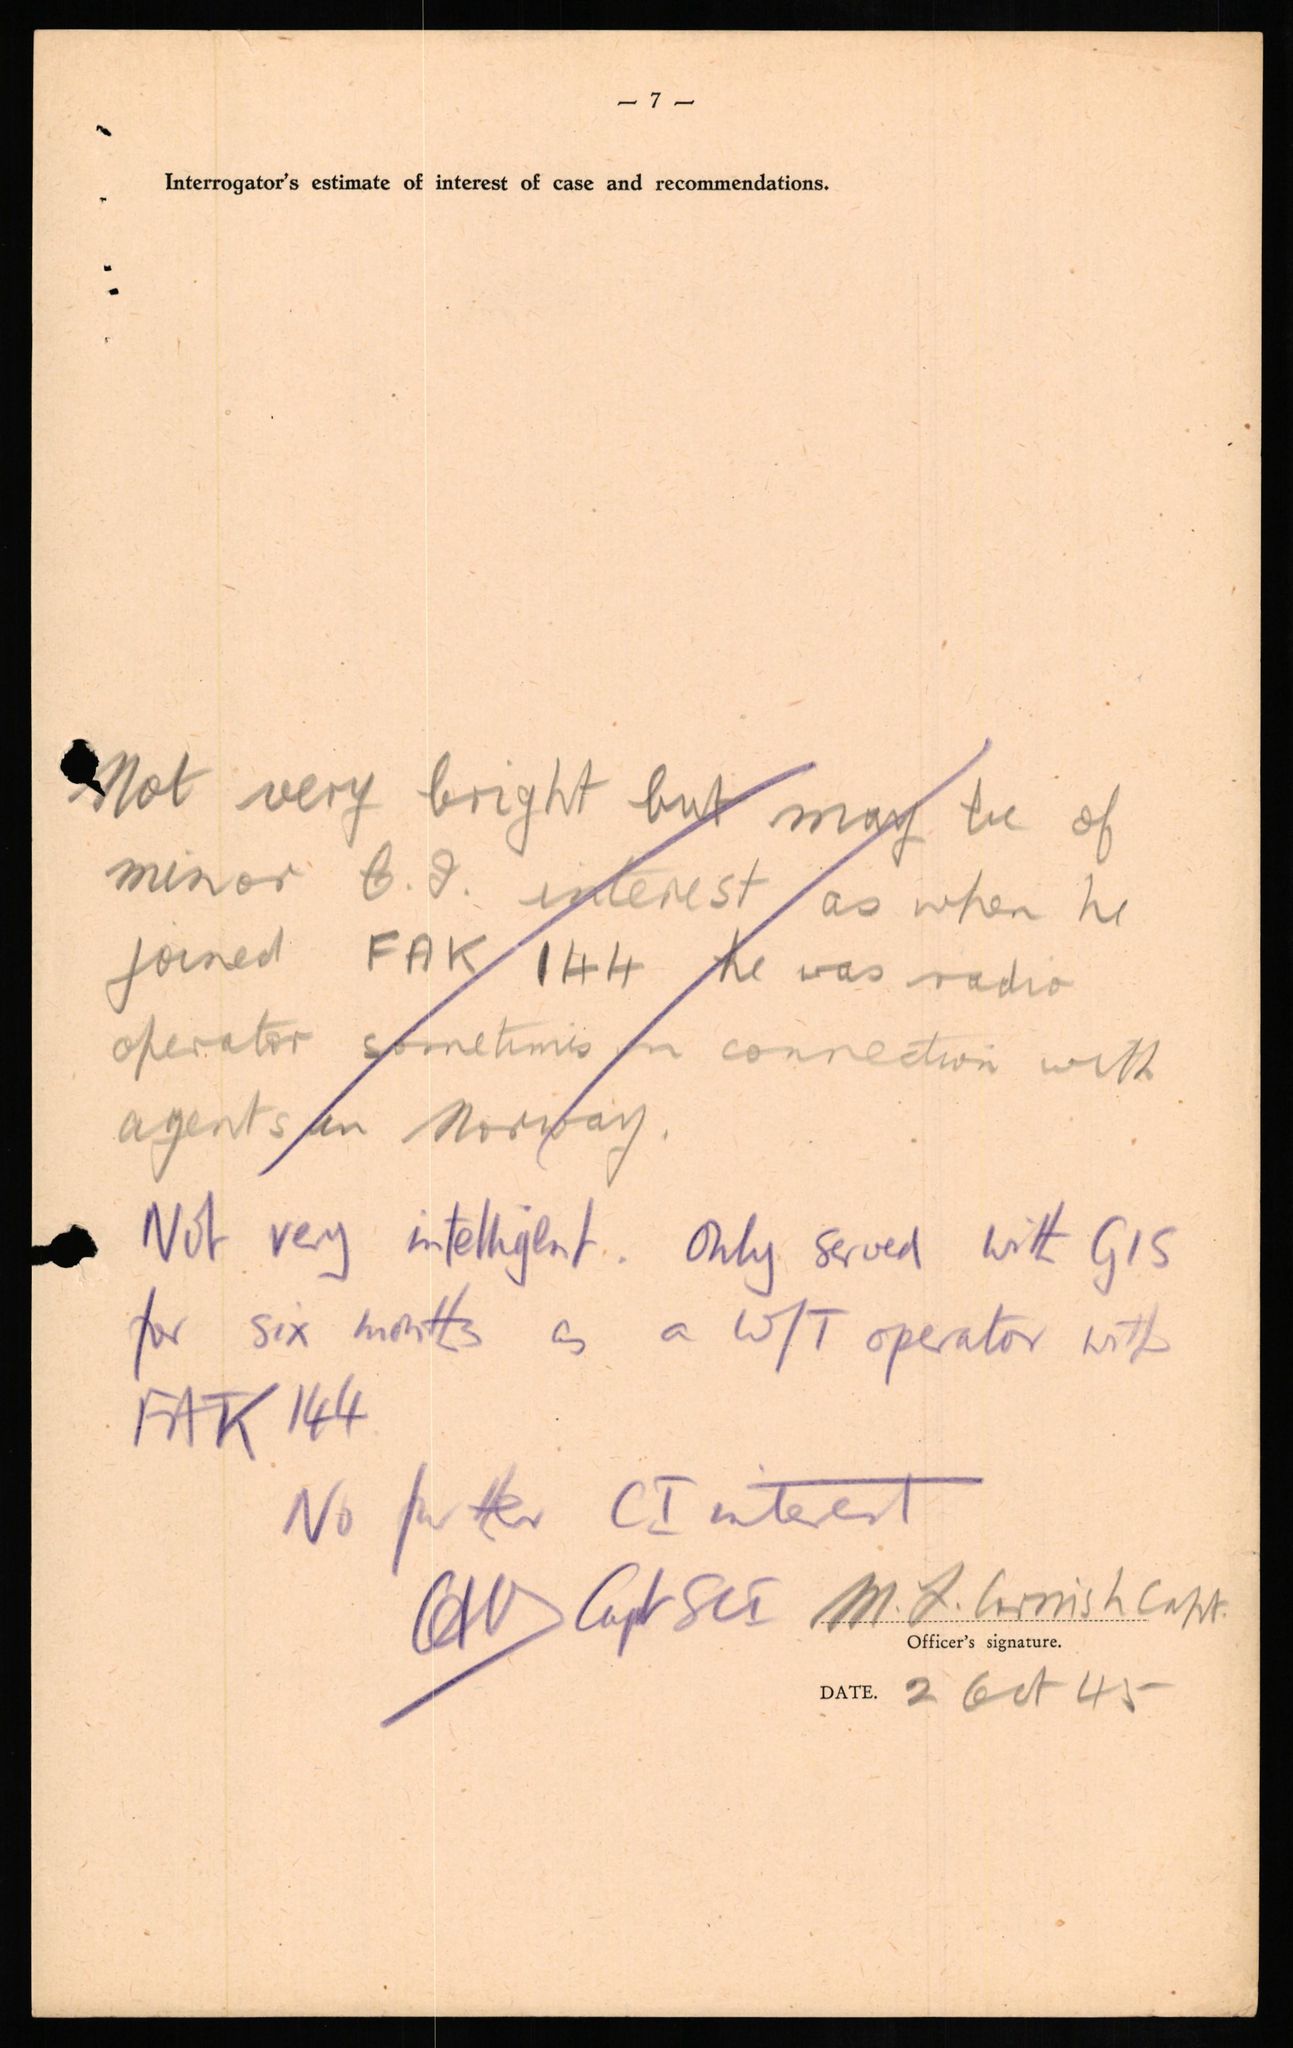 — 7 —
Interrogator's estimate of interest of case and recommendations.
Not very bright but may be of
minor C.I. interest as when he
joined FAK 144 he was radio
operator sometimes in connection with
agents in Norway.
Not very intelligent. Only served with GIS
for six months as a W/T operator with
FAK 144
No further CI interest
Capt SCI M. L. Cornish Capt.
Officer's signature.
DATE. 2 Oct 45